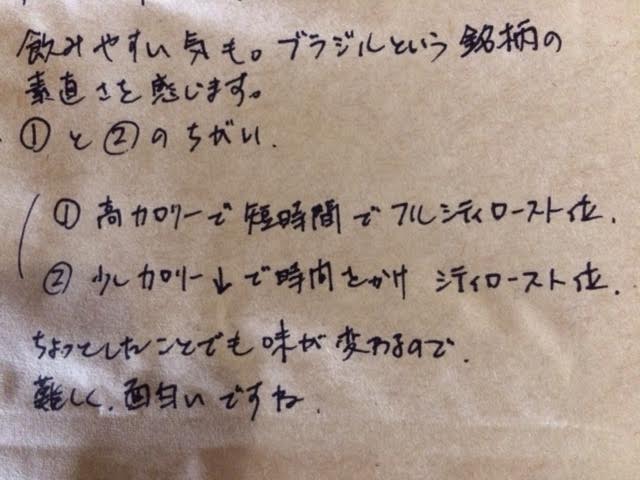 飲みやすい気も。ブラジルという銘柄の
素直さを感じます。
①と②のちがい.
① 高カロリーで短時間でフルシティロースト位.
② 少しカロリー↓で時間をかけ シティロースト位.
ちょっとしたことでも味が変わるので.
難しく.面白いですね.